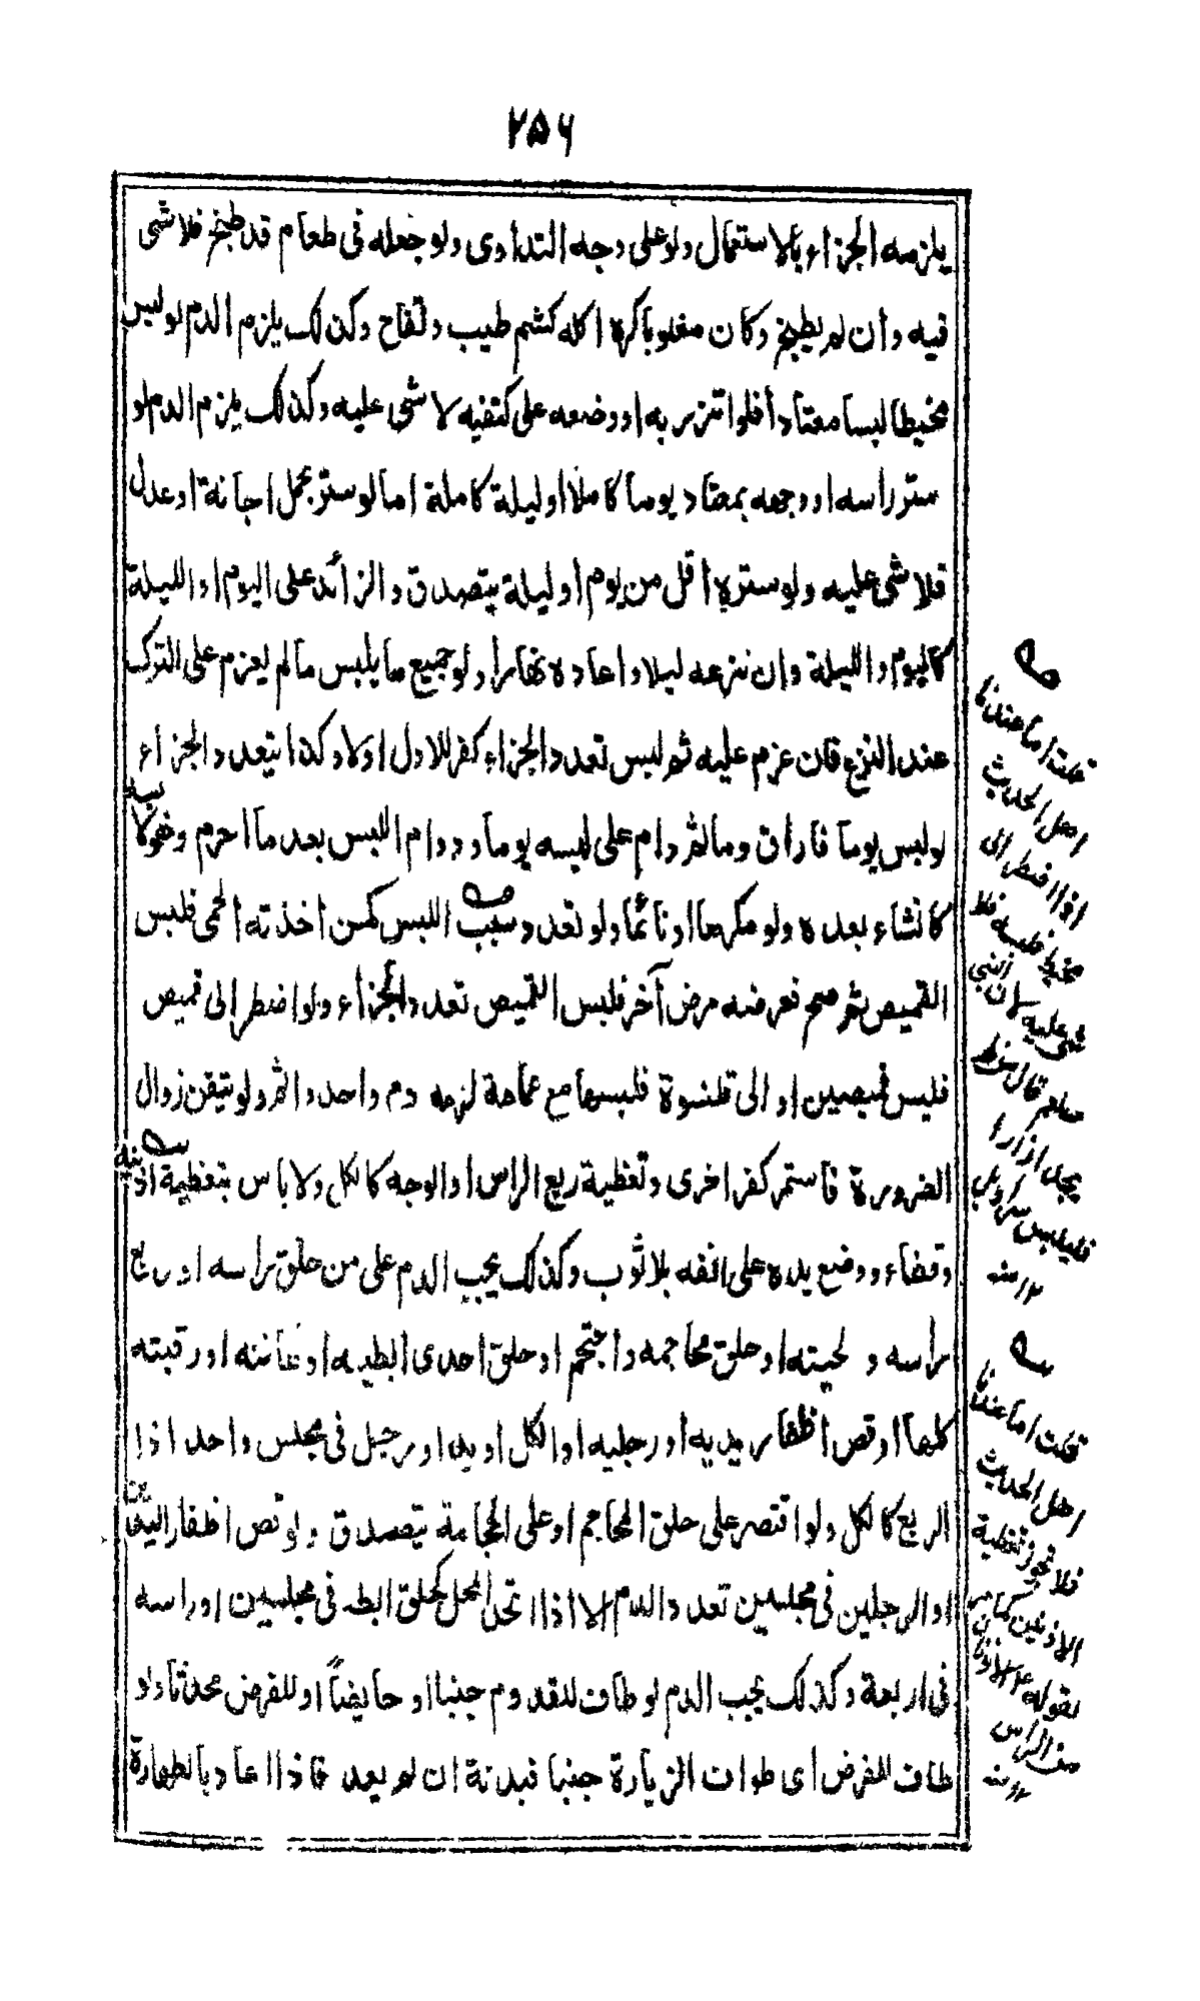 ٢٥٦
يلزمه الجزاء بالاستعمال ولو على وجه التداوى ولو جعله فى طعام قد طبخ فلا شى
فيه وان لم يطبخ وكان مغلوبا كره اكله كشم طيب وتفاح وكذلك يلزم الدم لو لبس
مخيطا لبسا معتادا فلو اتزر به او وضعه على كتفيه لا شى عليه وكذلك يلزم الدم لو
ستر راسه او وجهه بمعتاد يوما كاملا او ليلة كاملة اما لو ستر بحمل اجانة او عدل
فلا شى عليه ولو ستره اقل من يوم او ليلة يتصدق والزائد على اليوم او الليلة
كاليوم والليلة وان نزعه ليلا واعاده نهارا ولو جميع ما يلبس ما لم يعزم على الترك
عند النزع فان عزم عليه ثم لبس تعدد الجزاء كفر للاول اولا وكذا يتعدد الجزاء
لو لبس يوما فاراق دما ثم دام على لبسه يوما ودوام اللبس بعد ما احرم وهو لابسه
كانشاء بعده ولو مكرها او نائما ولو تعدد سبب اللبس كمن اخذته الحمى فلبس
القميص ثم صح فعرضه مرض آخر فلبس القميص تعدد الجزاء ولو اضطر الى قميص
فلبس قميصين او الى قلنسوة فلبسها مع عمامة لزمه دم واحد واثم ولو تيقن زوال
الضرورة فاستمر كفر اخرى وتغطية ربع الراس او الوجه كالكل ولا باس بتغطية اذنيه
وقفاه ووضع يده على انفه بلا ثوب وكذلك يجب الدم على من حلق راسه او ربع
راسه و لحيته او حلق محاجمه واحتجم او حلق احدى ابطيه او عانته او رقبته
كلها او قص اظفار يديه او رجليه او الكل او يد او رجل فى مجلس واحد اذا
الربع كالكل ولو اقتصر على حلق المحاجم او على الحجامة يتصدق ولو قص اظفار اليدين
او الرجلين فى مجلسين تعدد الدم الا اذا اتحد المحل كحلق ابطه فى مجلسين او راسه
فى اربعة وكذلك يجب الدم لو طاف للقدوم جنبا او حايضاً او للفرض محدثا ولو
طاف للفرض اى طواف الزيارة جنبا فبدنة ان لم يعد فاذا اعاد بالطهارة
قلت اما عندنا
اهل الحديث
اذا اضطر الى
مخيط فلبسه فلا
شى عليه لان النبى
صلعم قال من لم
يجد ازارا
فليلبس سراويل
١٢ منه
قلت اما عندنا
اهل الحديث
فلا تجوز تغطية
الاذنين كما مر
لقوله ع م الاذنان
من الراس
١٢ منه